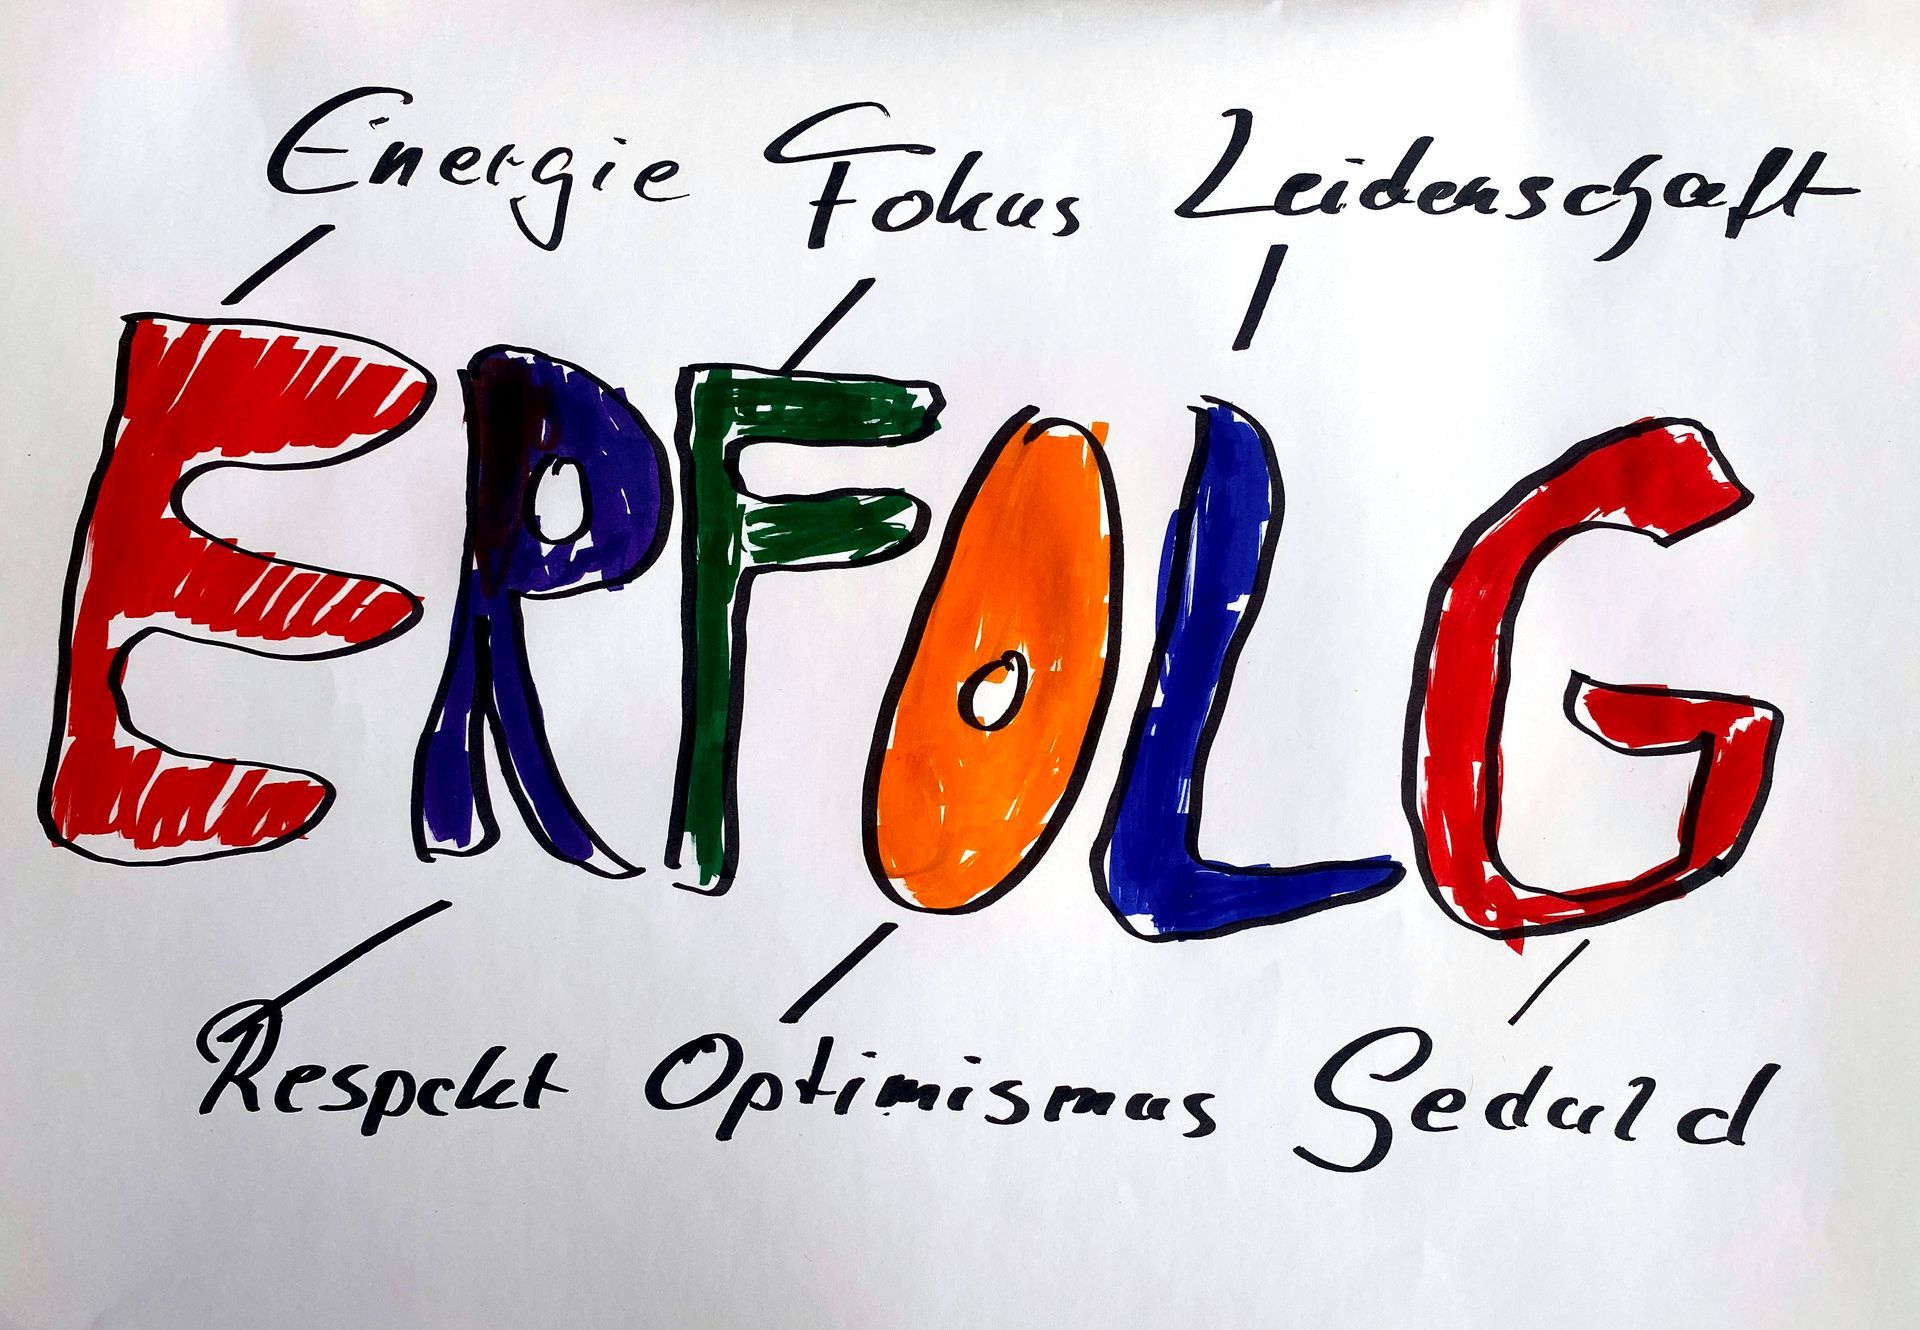 Energie Fokus Leidenschaft
ERFOLG
Respekt Optimismus Geduld